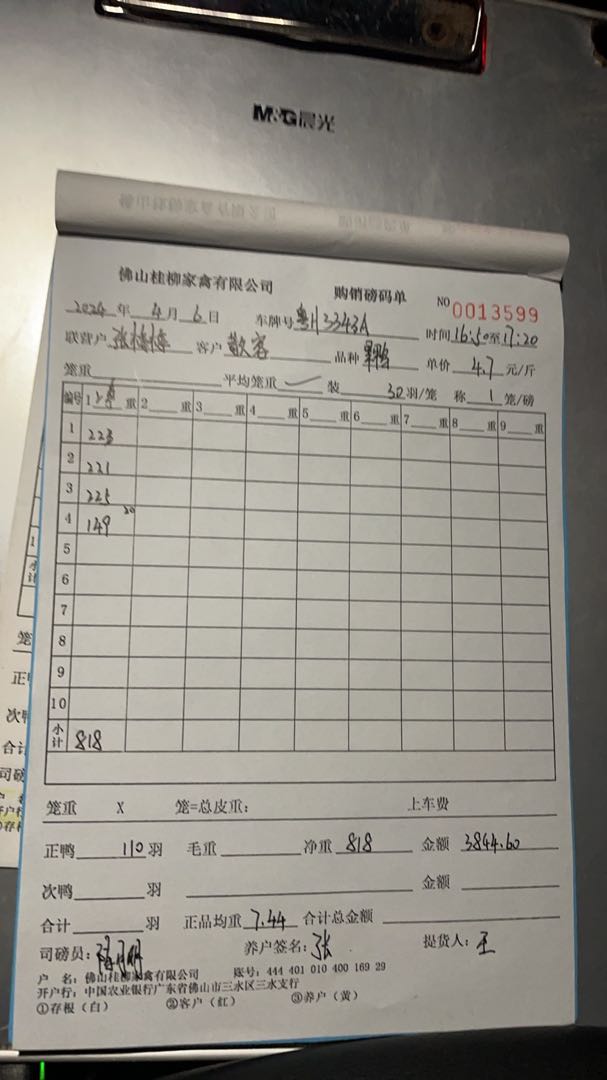 M&G晨光
佛山桂柳家禽有限公司 购销磅码单 NO 0013599
2024 年 4 月 6 日 车牌号 3343A 时间 16:50至17:20
联营户 张 客户 散客 品种 单价 4.7 元/斤
笼重 平均笼重 装 30 羽/笼 称 1 笼/磅
编号 1 重 2 重 3 重 4 重 5 重 6 重 7 重 8 重 9 重
1 223
2 221
3 225
4 149 20
5
6
7
8
9
10
小计 818
笼重 X 笼=总皮重: 上车费
正鸭 110 羽 毛重 净重 818 金额 3844.60
次鸭 羽 金额
合计 羽 正品均重 7.44 合计总金额
司磅员: 养户签名: 张 提货人: 王
户 名: 佛山桂柳家禽有限公司 账号: 444 401 010 400 169 29
开户行: 中国农业银行广东省佛山市三水区三水支行
①存根(白) ②客户(红) ③养户(黄)